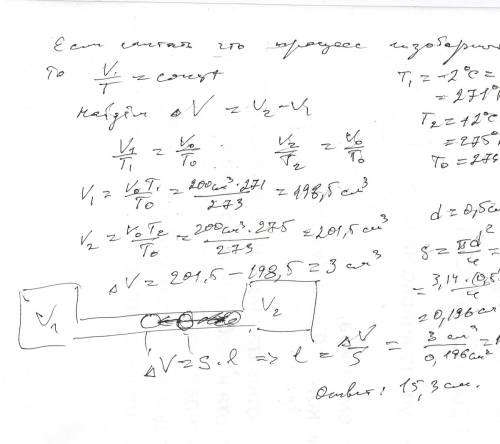 Если считать что процесс изобарный
То V₁/T = const
T₁ = -2°C =
= 271°
найдём ΔV = V₂ - V₁
T₂ = +2°C
= 275°
V₁/T₁ = V₀/T₀ V₂/T₂ = V₀/T₀
T₀ = 273
V₁ = V₀T₁/T₀ = 200см³·271/273 = 198,5 см³
V₂ = V₀T₂/T₀ = 200см³·275/273 = 201,5 см³
d = 0,5см
S = πd²/4 =
= 3,14·(0,5)/4
= 0,196см
ΔV = 201,5 - 198,5 = 3 см³
V₁ V₂
ΔV = S·l => l = ΔV/S = 3 см³/0,196см² = 1
Ответ: 15,3 см.